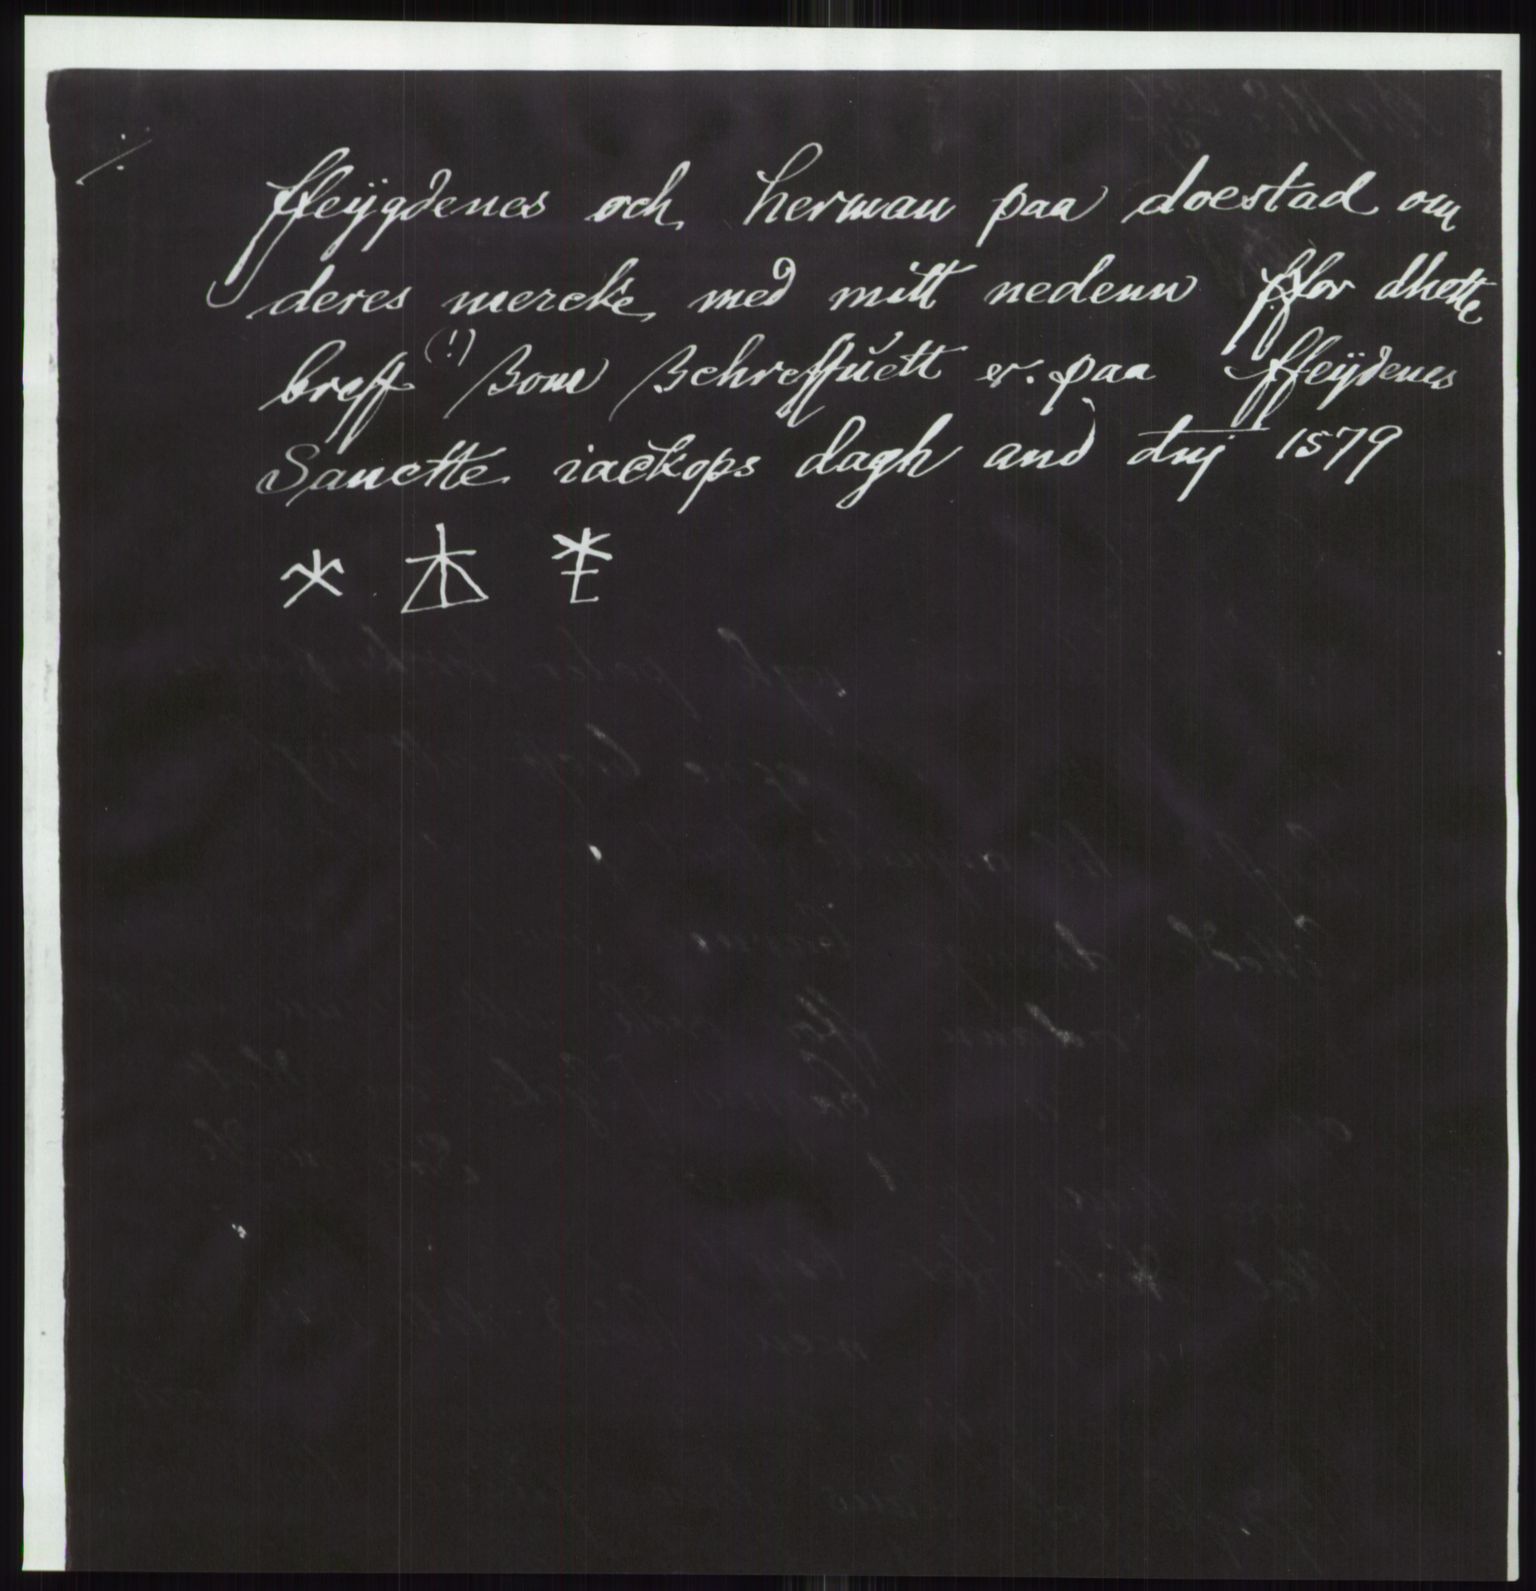 ffeÿgdenes och herman paa doestad om
deres mercke med mitt nedenn ffor dhette
breff (!) ßom ßchreffŭett er. paa ffeÿdenes
Sanctte iackops dagh and dnj 1579